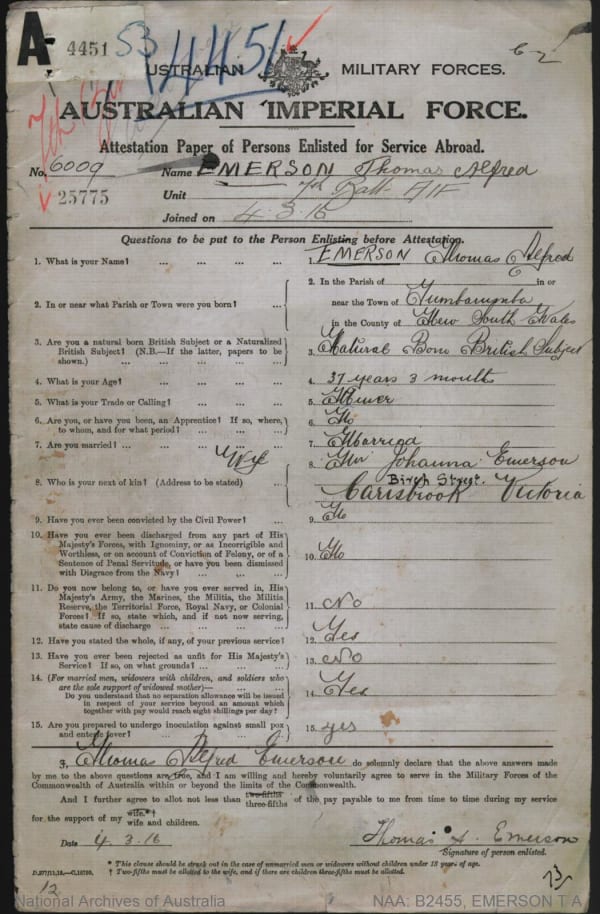 A- 4451 53 4451
AUSTRALIAN MILITARY FORCES.
AUSTRALIAN IMPERIAL FORCE.
Attestation Paper of Persons Enlisted for Service Abroad.
No. 6009 Name EMERSON Thomas Alfred
25775 Unit 7th Batt AIF
Joined on 4.3.16
Questions to be put to the Person Enlisting before Attestation.
1. What is your Name? ... ... ... ... EMERSON Thomas Alfred
2. In or near what Parish or Town were you born? ... 2. In the Parish of in or
near the Town of Tumbarumba
in the County of New South Wales
3. Are you a natural born British Subject or a Naturalized
British Subject? (N.B.—If the latter, papers to be
shown.) ... ... ... ... 3. Natural Born British Subject
4. What is your Age? ... ... ... ... 4. 37 years 3 months
5. What is your Trade or Calling? ... ... ... 5. Miner
6. Are you, or have you been, an Apprentice? If so, where,
to whom, and for what period? ... ... ... 6. No
7. Are you married? ... ... ... ... 7. Married
Wife
8. Who is your next of kin? (Address to be stated) ... 8. Mrs Johanna Emerson
Birch Street.
Carisbrook Victoria
9. Have you ever been convicted by the Civil Power? ... 9. No
10. Have you ever been discharged from any part of His
Majesty's Forces, with Ignominy, or as Incorrigible and
Worthless, or on account of Conviction of Felony, or of a
Sentence of Penal Servitude, or have you been dismissed
with Disgrace from the Navy? ... ... ... 10. No
11. Do you now belong to, or have you ever served in, His
Majesty's Army, the Marines, the Militia, the Militia
Reserve, the Territorial Force, Royal Navy, or Colonial
Forces? If so, state which, and if not now serving,
state cause of discharge ... ... ... 11. No
12. Have you stated the whole, if any, of your previous service? 12. Yes
13. Have you ever been rejected as unfit for His Majesty's
Service? If so, on what grounds? ... ... ... 13. No
14. (For married men, widowers with children, and soldiers who
are the sole support of widowed mother)—
Do you understand that no separation allowance will be issued
in respect of your service beyond an amount which
together with pay would reach eight shillings per day? 14. Yes
15. Are you prepared to undergo inoculation against small pox
and enteric fever? ... ... ... ... 15. yes
I, Thomas Alfred Emerson do solemnly declare that the above answers made
by me to the above questions are true, and I am willing and hereby voluntarily agree to serve in the Military Forces of the
Commonwealth of Australia within or beyond the limits of the Commonwealth.
And I further agree to allot not less than two-fifths three-fifths of the pay payable to me from time to time during my service
for the support of my wife.*† wife and children.
Date 4.3.16 Thomas A. Emerson
Signature of person enlisted.
* This clause should be struck out in the case of unmarried men or widowers without children under 18 years of age.
† Two-fifths must be allotted to the wife, and if there are children three-fifths must be allotted.
12
National Archives of Australia NAA: B2455, EMERSON T A